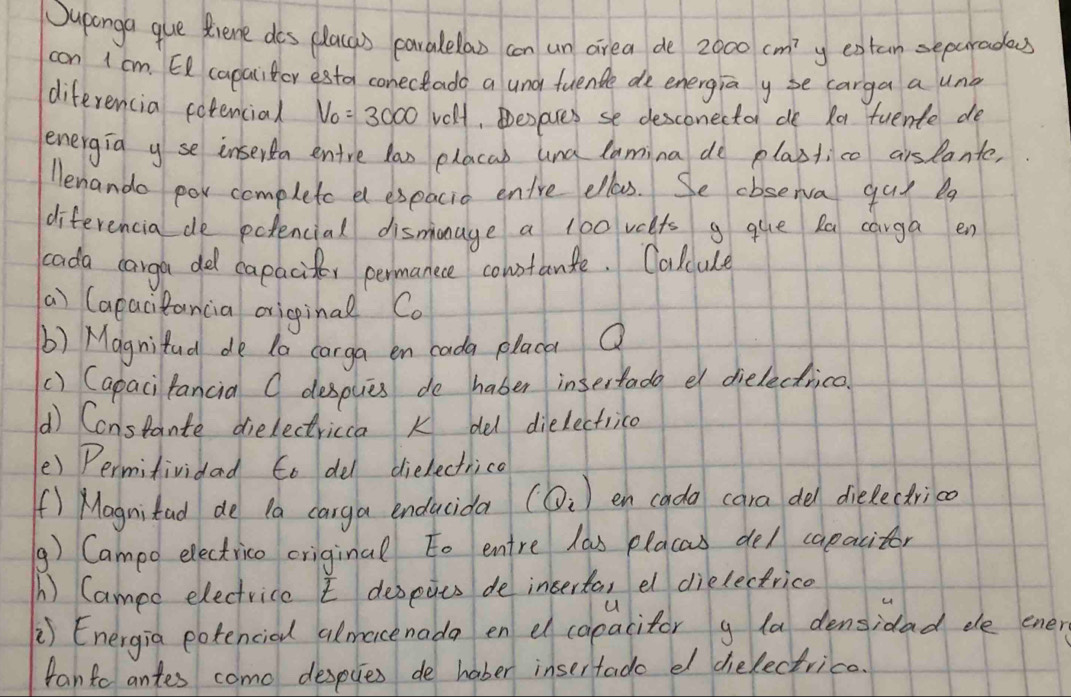 Suponga que tiene dos placas paralelas con un área de 2000 cm² y estan separadas
con 1 cm. El capacitor esta conectado a una fuente de energía y se carga a una
diferencia potencial V₀ = 3000 volt. Despues se desconecta de la fuente de
energía y se inserta entre las placas una lamina de plastico aislante,
llenando por completo el espacio entre ellas. Se observa que la
diferencia de potencial disminuye a 100 volts y que la carga en
cada carga del capacitor permanece constante. Calcule
a) Capacitancia original C₀
b) Magnitud de la carga en cada placa Q
c) Capacitancia C después de haber insertado el dielectrico.
d) Constante dielectricca K del dielectrico
e) Permitividad ϵ₀ del dielectrico
f) Magnitud de la carga enducida (Qi) en cada cara del dielectrico
g) Campo electrico original E₀ entre las placas del capacitor
h) Campo electrico E después de insertar el dielectrico
i) Energía potencial almacenada en el capacitor u y la densidad u de ener
tanto antes como después de haber insertado el dielectrico.